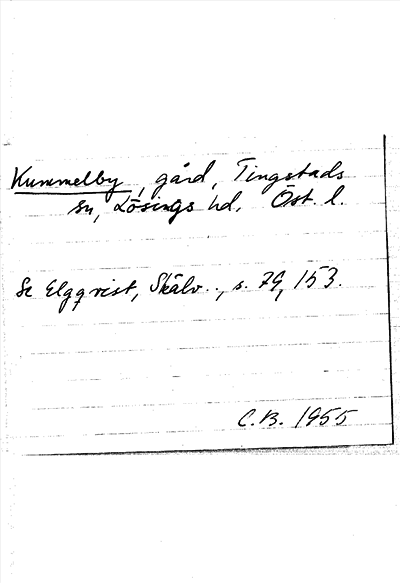 Kummelby, gård, Tingstads
sn, Lösings hd, Öst. l.
Se Elgqvist, Skälv.., s. 79, 153.
C.B. 1955